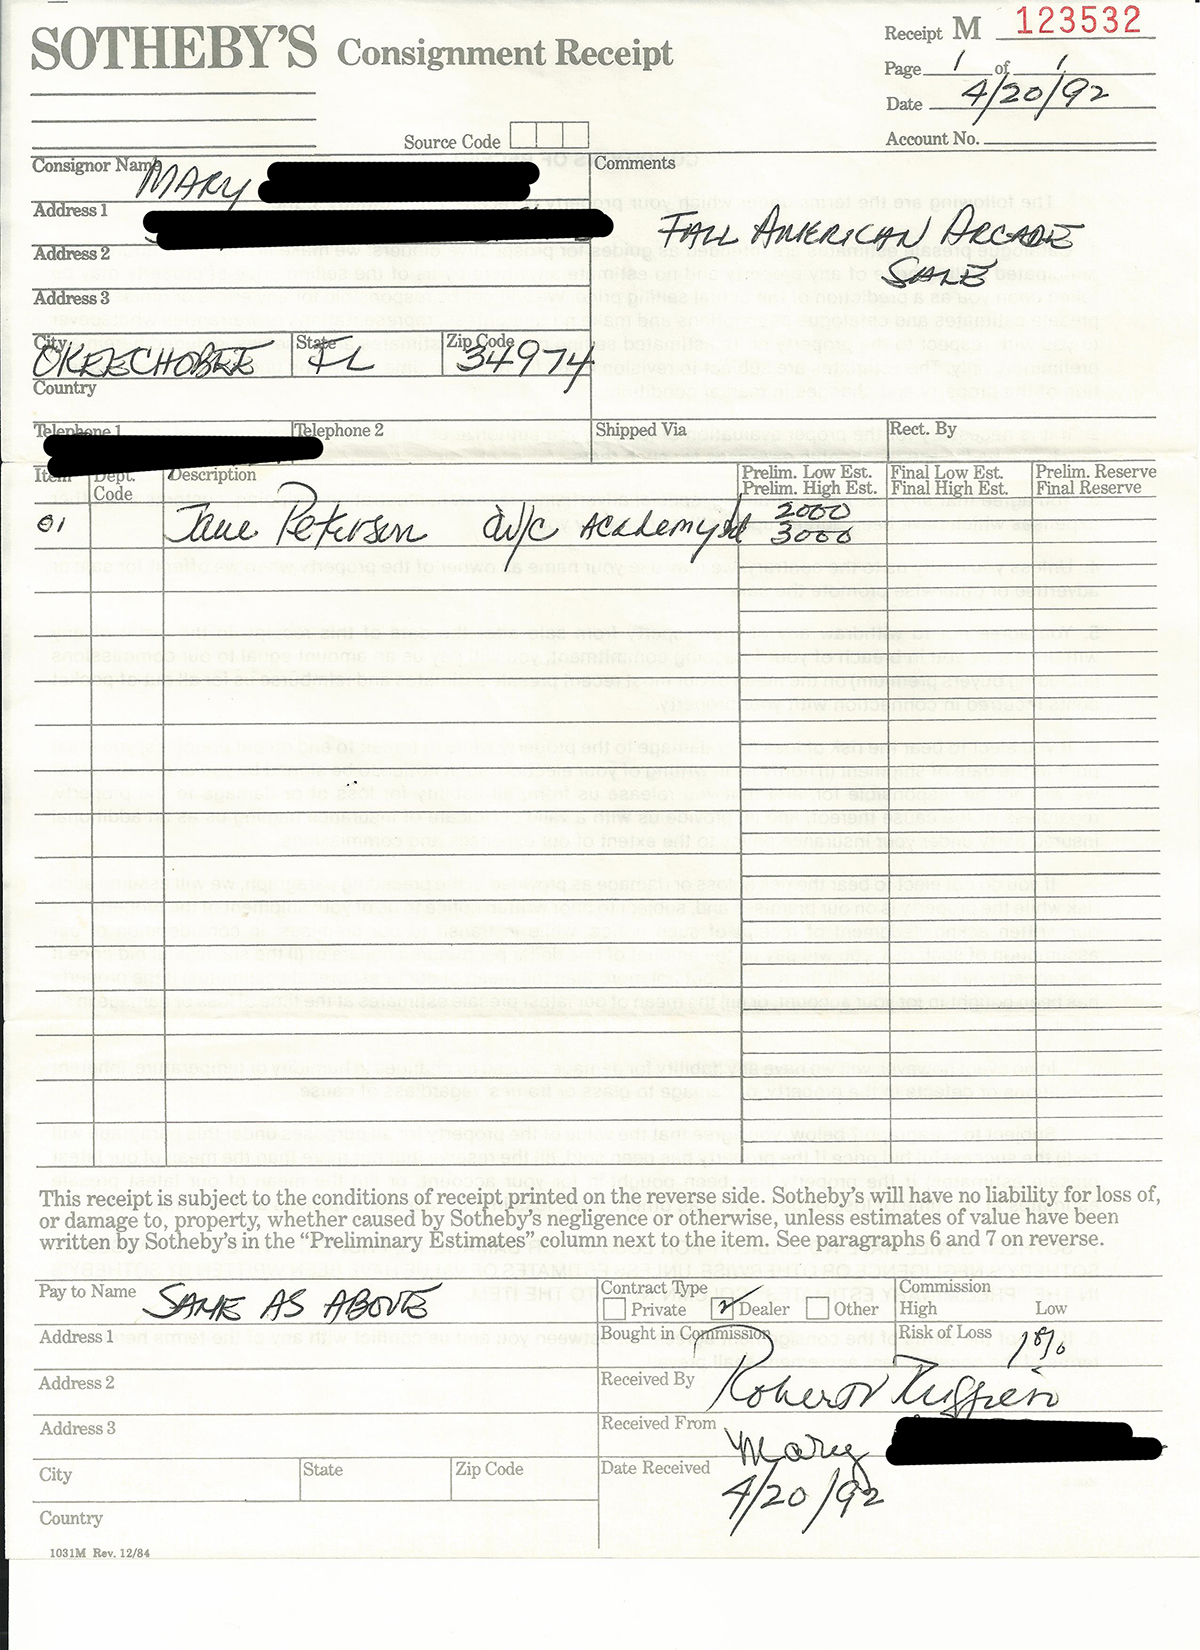 SOTHEBY'S Consignment Receipt
Receipt M 123532
Page 1 of 1
Date 4/20/92
Account No.
Source Code
Consignor Name MARY
Comments
FALL AMERICAN ARCADE
SALE
Address 1
Address 2
Address 3
City OKEECHOBEE State FL Zip Code 34974
Country
Telephone 1 Telephone 2 Shipped Via Rect. By
Item Dept. Code Description Prelim. Low Est. Prelim. High Est. Final Low Est. Final High Est. Prelim. Reserve Final Reserve
01 Jane Peterson Academy 2000
3000
This receipt is subject to the conditions of receipt printed on the reverse side. Sotheby's will have no liability for loss of,
or damage to, property, whether caused by Sotheby's negligence or otherwise, unless estimates of value have been
written by Sotheby's in the "Preliminary Estimates" column next to the item. See paragraphs 6 and 7 on reverse.
Pay to Name SAME AS ABOVE
Address 1
Address 2
Address 3
City State Zip Code
Country
Contract Type
Private Dealer Other
Commission
High Low
Bought in Commission
Risk of Loss 1%
Received By Robert
Received From Mary
Date Received 4/20/92
1031M Rev. 12/84